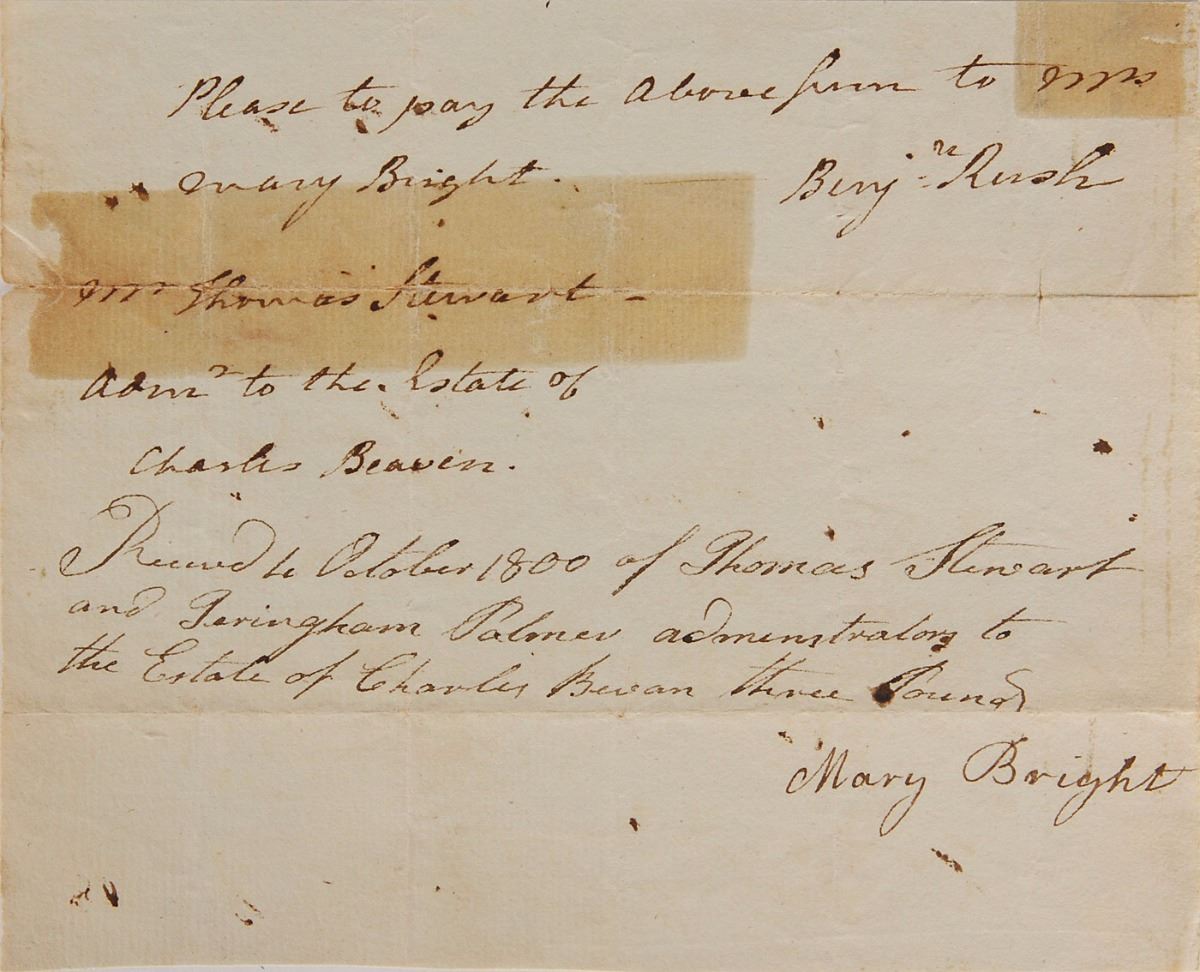 Please to pay the above sum to Mrs
Mary Bright. Benjn Rush
Mr Thomas Stewart -
Admr to the Estate of
Charles Beaven.
October 1800 of Thomas Stewart
and Jeringham Palmer adminstrators to
the Estate of Charles Bevan three Pounds
Mary Bright